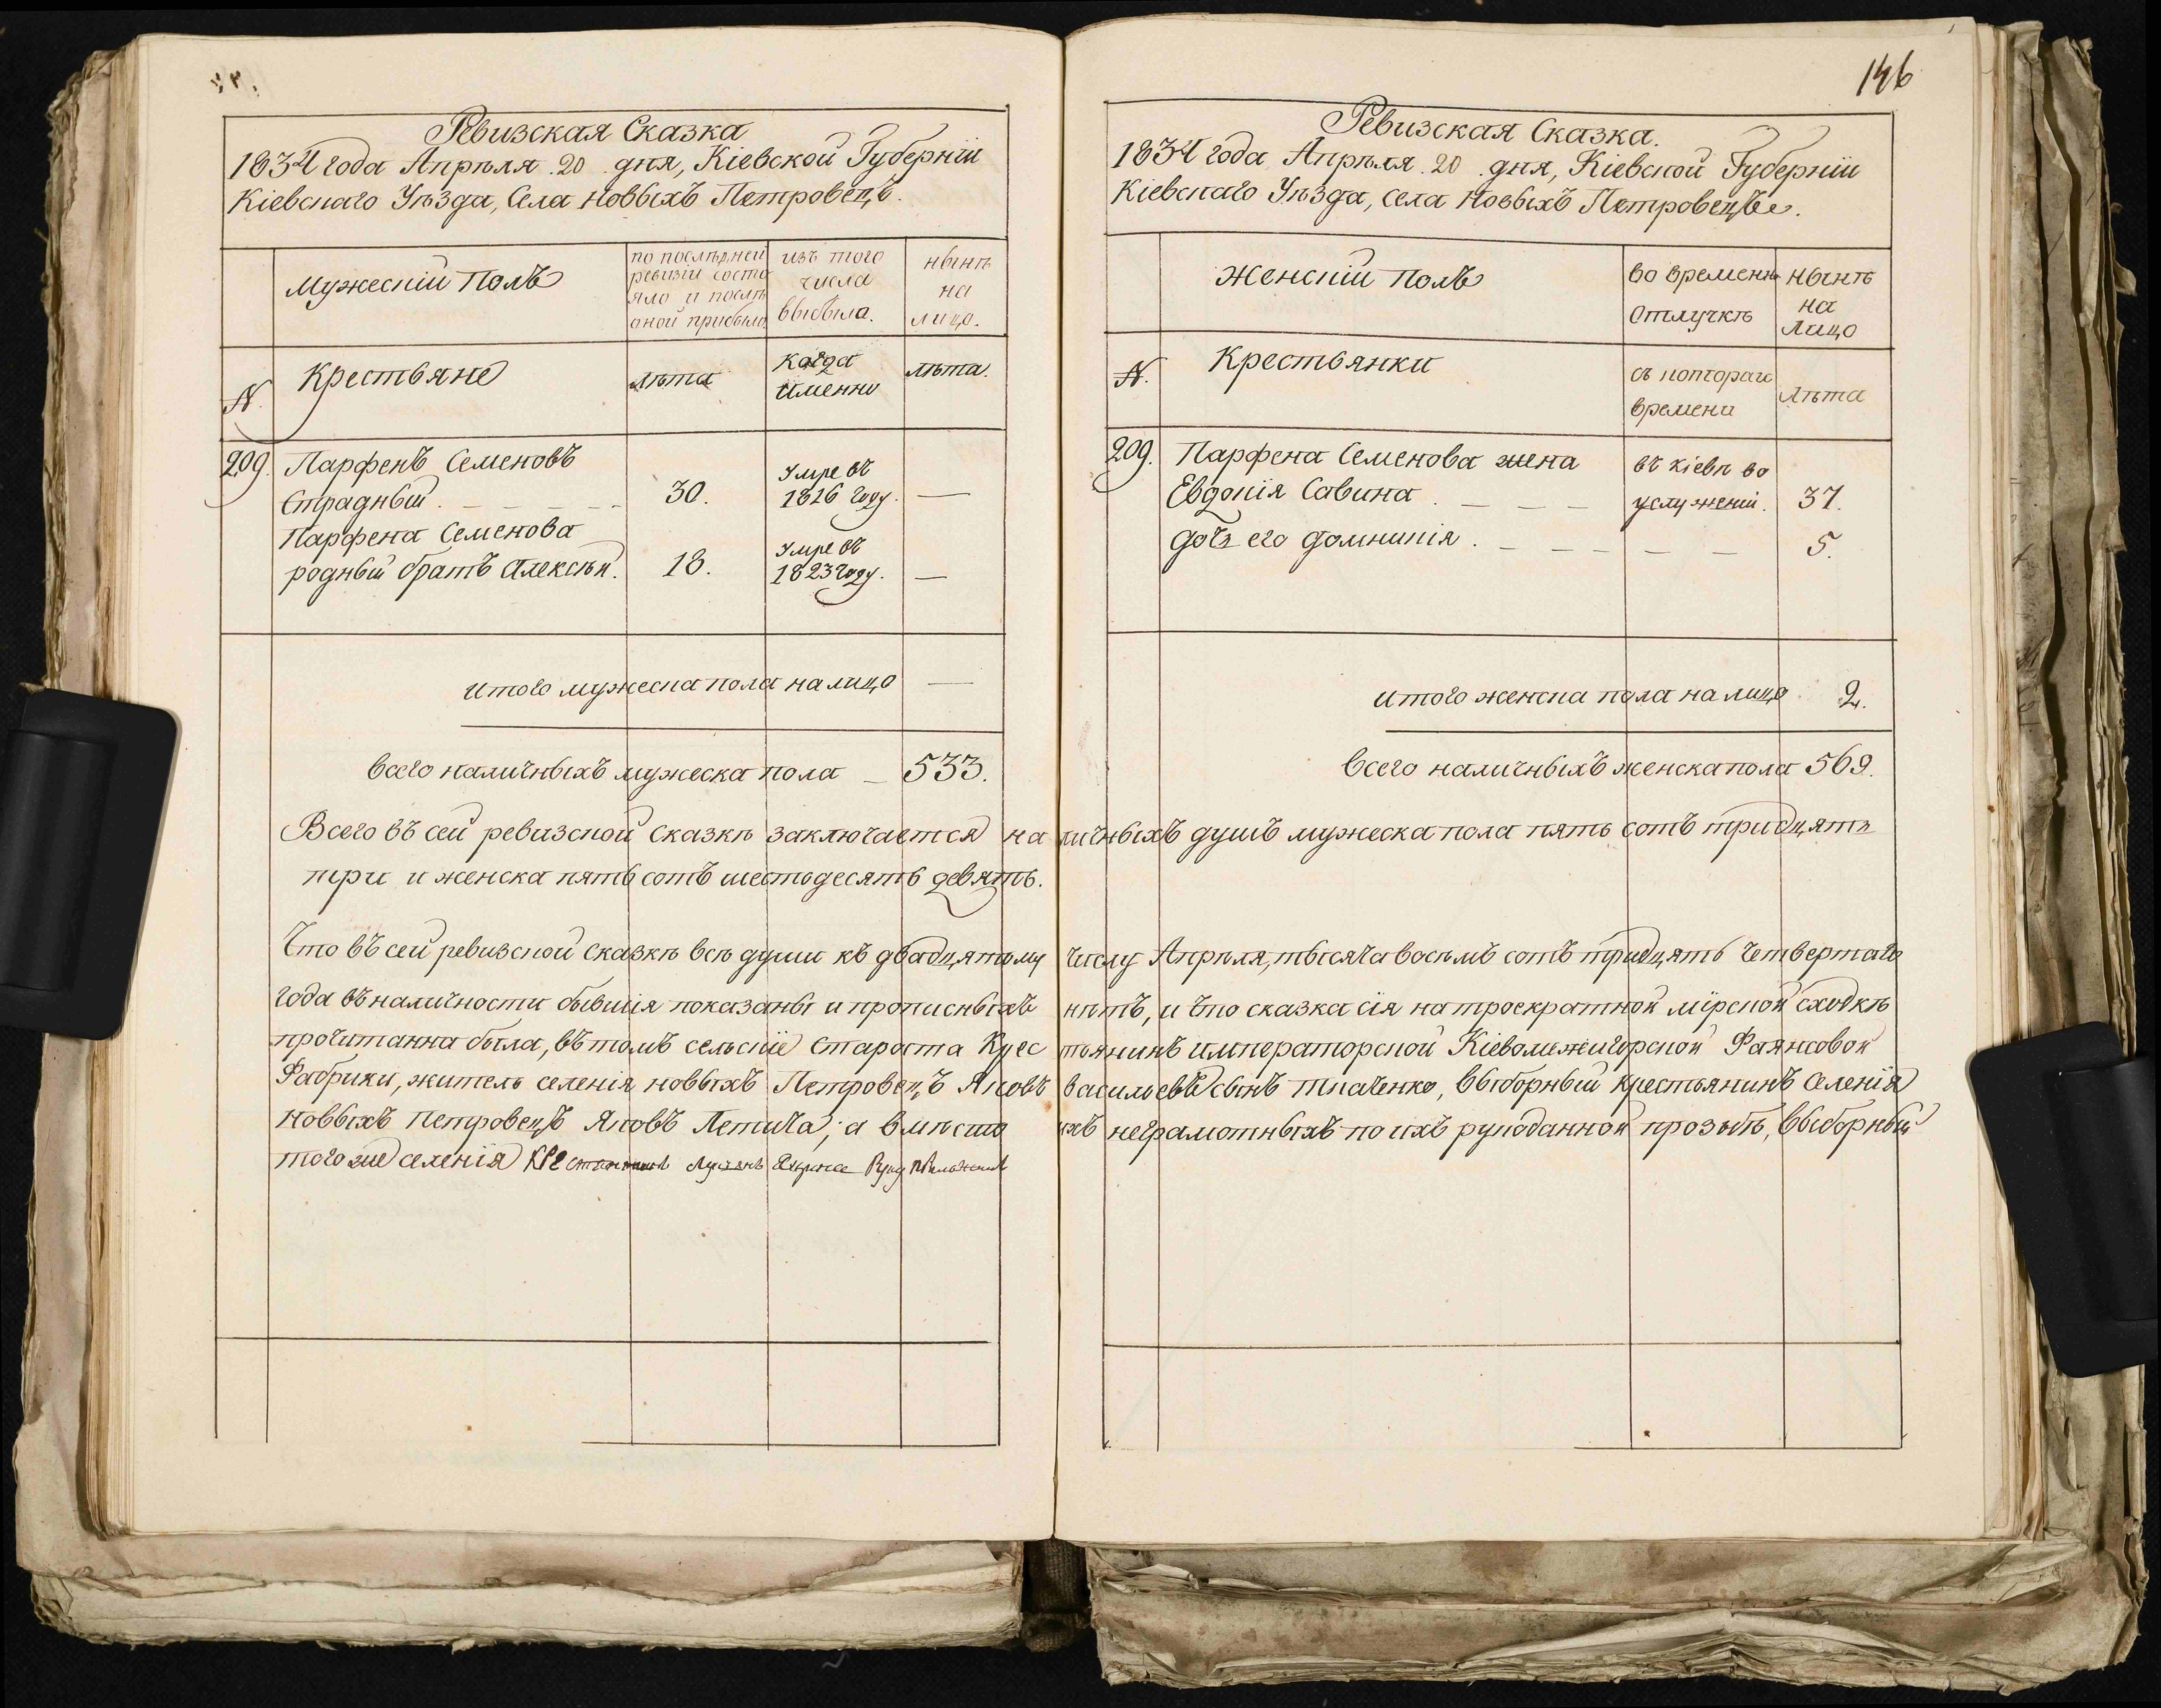 146
Ревизская Сказка
1834 года Апрѣля 20 дня, Кіевской Губерніи
Кіевскаго Уѣзда, Села Новыхъ Петровецъ.
Мужескій полъ
по послѣдней ревизіи состояло и послѣ оной прибыло
изъ того числа выбыла.
нынѣ на лицо.
N.
Крестьяне
лѣта
когда именно
лѣта.
209. Парфенъ Семеновъ
Страдный. 30. Умре въ 1826 году. —
Парфена Семенова
родный братъ Алексѣй. 18. Умре въ 1823 году. —
итого мужеска пола на лицо —
всего наличныхъ мужеска пола — 533.
Ревизская Сказка.
1834 года Апрѣля 20 дня, Кіевской Губерніи
Кіевскаго Уѣзда, села Новыхъ Петровецъ.
женскій полъ
во временной отлучкѣ
нынѣ на лицо
N.
Крестьянки
съ котораго времени
лѣта
209. Парфена Семенова жена въ кіевѣ во
Евдокія Савина услуженіи. 37.
дочь его домникія. 5.
итого женска пола на лицо 2.
всего наличныхъ женска пола 569.
Всего въ сей ревизской сказкѣ заключается наличныхъ душъ мужеска пола пять сотъ тридцять
три и женска пять сотъ шестодесять девять.
Что въ сей ревизской сказкѣ всѣ души къ двадцятому числу Апрѣля, тысяча восьмъ сотъ тридцять четвертаго
года въ наличности бывшія показаны и прописныхъ нѣтъ, и что сказка сія на троекратной мірской сходкѣ
прочитанна была, въ томъ сельскіе староста Крестьянинъ императорской Кіевомежигорской Фаянсовой
Фабрики, житель селенія новыхъ Петровецъ Яковъ васильевъ сынъ ткаченко, выборный крестьянинъ селенія
Новыхъ Петровецъ Яковъ Летича; а вмѣсто ихъ неграмотныхъ по ихъ рукоданной прозьбѣ, выборный
того же селенія